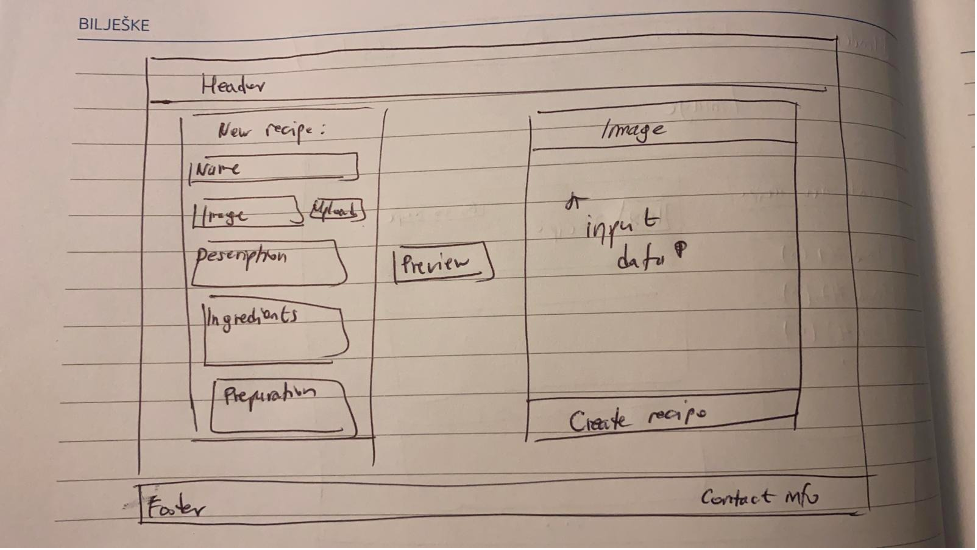 BILJEŠKE
Header
New recipe:
Name
Image Upload
Description
Ingredients
Preparation
Preview
Image
input
data
Create recipe
Footer
Contact info